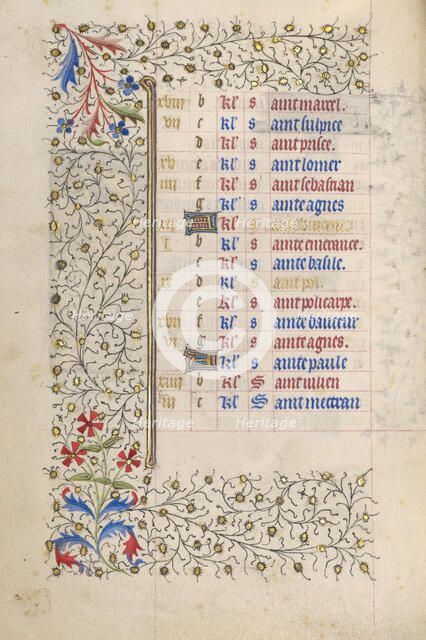 xviii b kl s aint marcel.
vii c kl s aint sulpice
d kl s aint prisce.
xv e kl s aint lomer
iiii f kl s aint sebastian
g kl s ainte agnes
xii kl s aint vincent.
i. b kl s ainte emerance.
c kl s ainte basile.
ix d kl s aint pol.
e kl s aint policarpe.
xvii f kl s ainte bauteur
vi g kl s ainte agnes.
kl s ainte paule
xiiii b kl S aint iulien
iii c kl S aint metran
Heritage
Heritage
Heritage
Heritage
Heritage